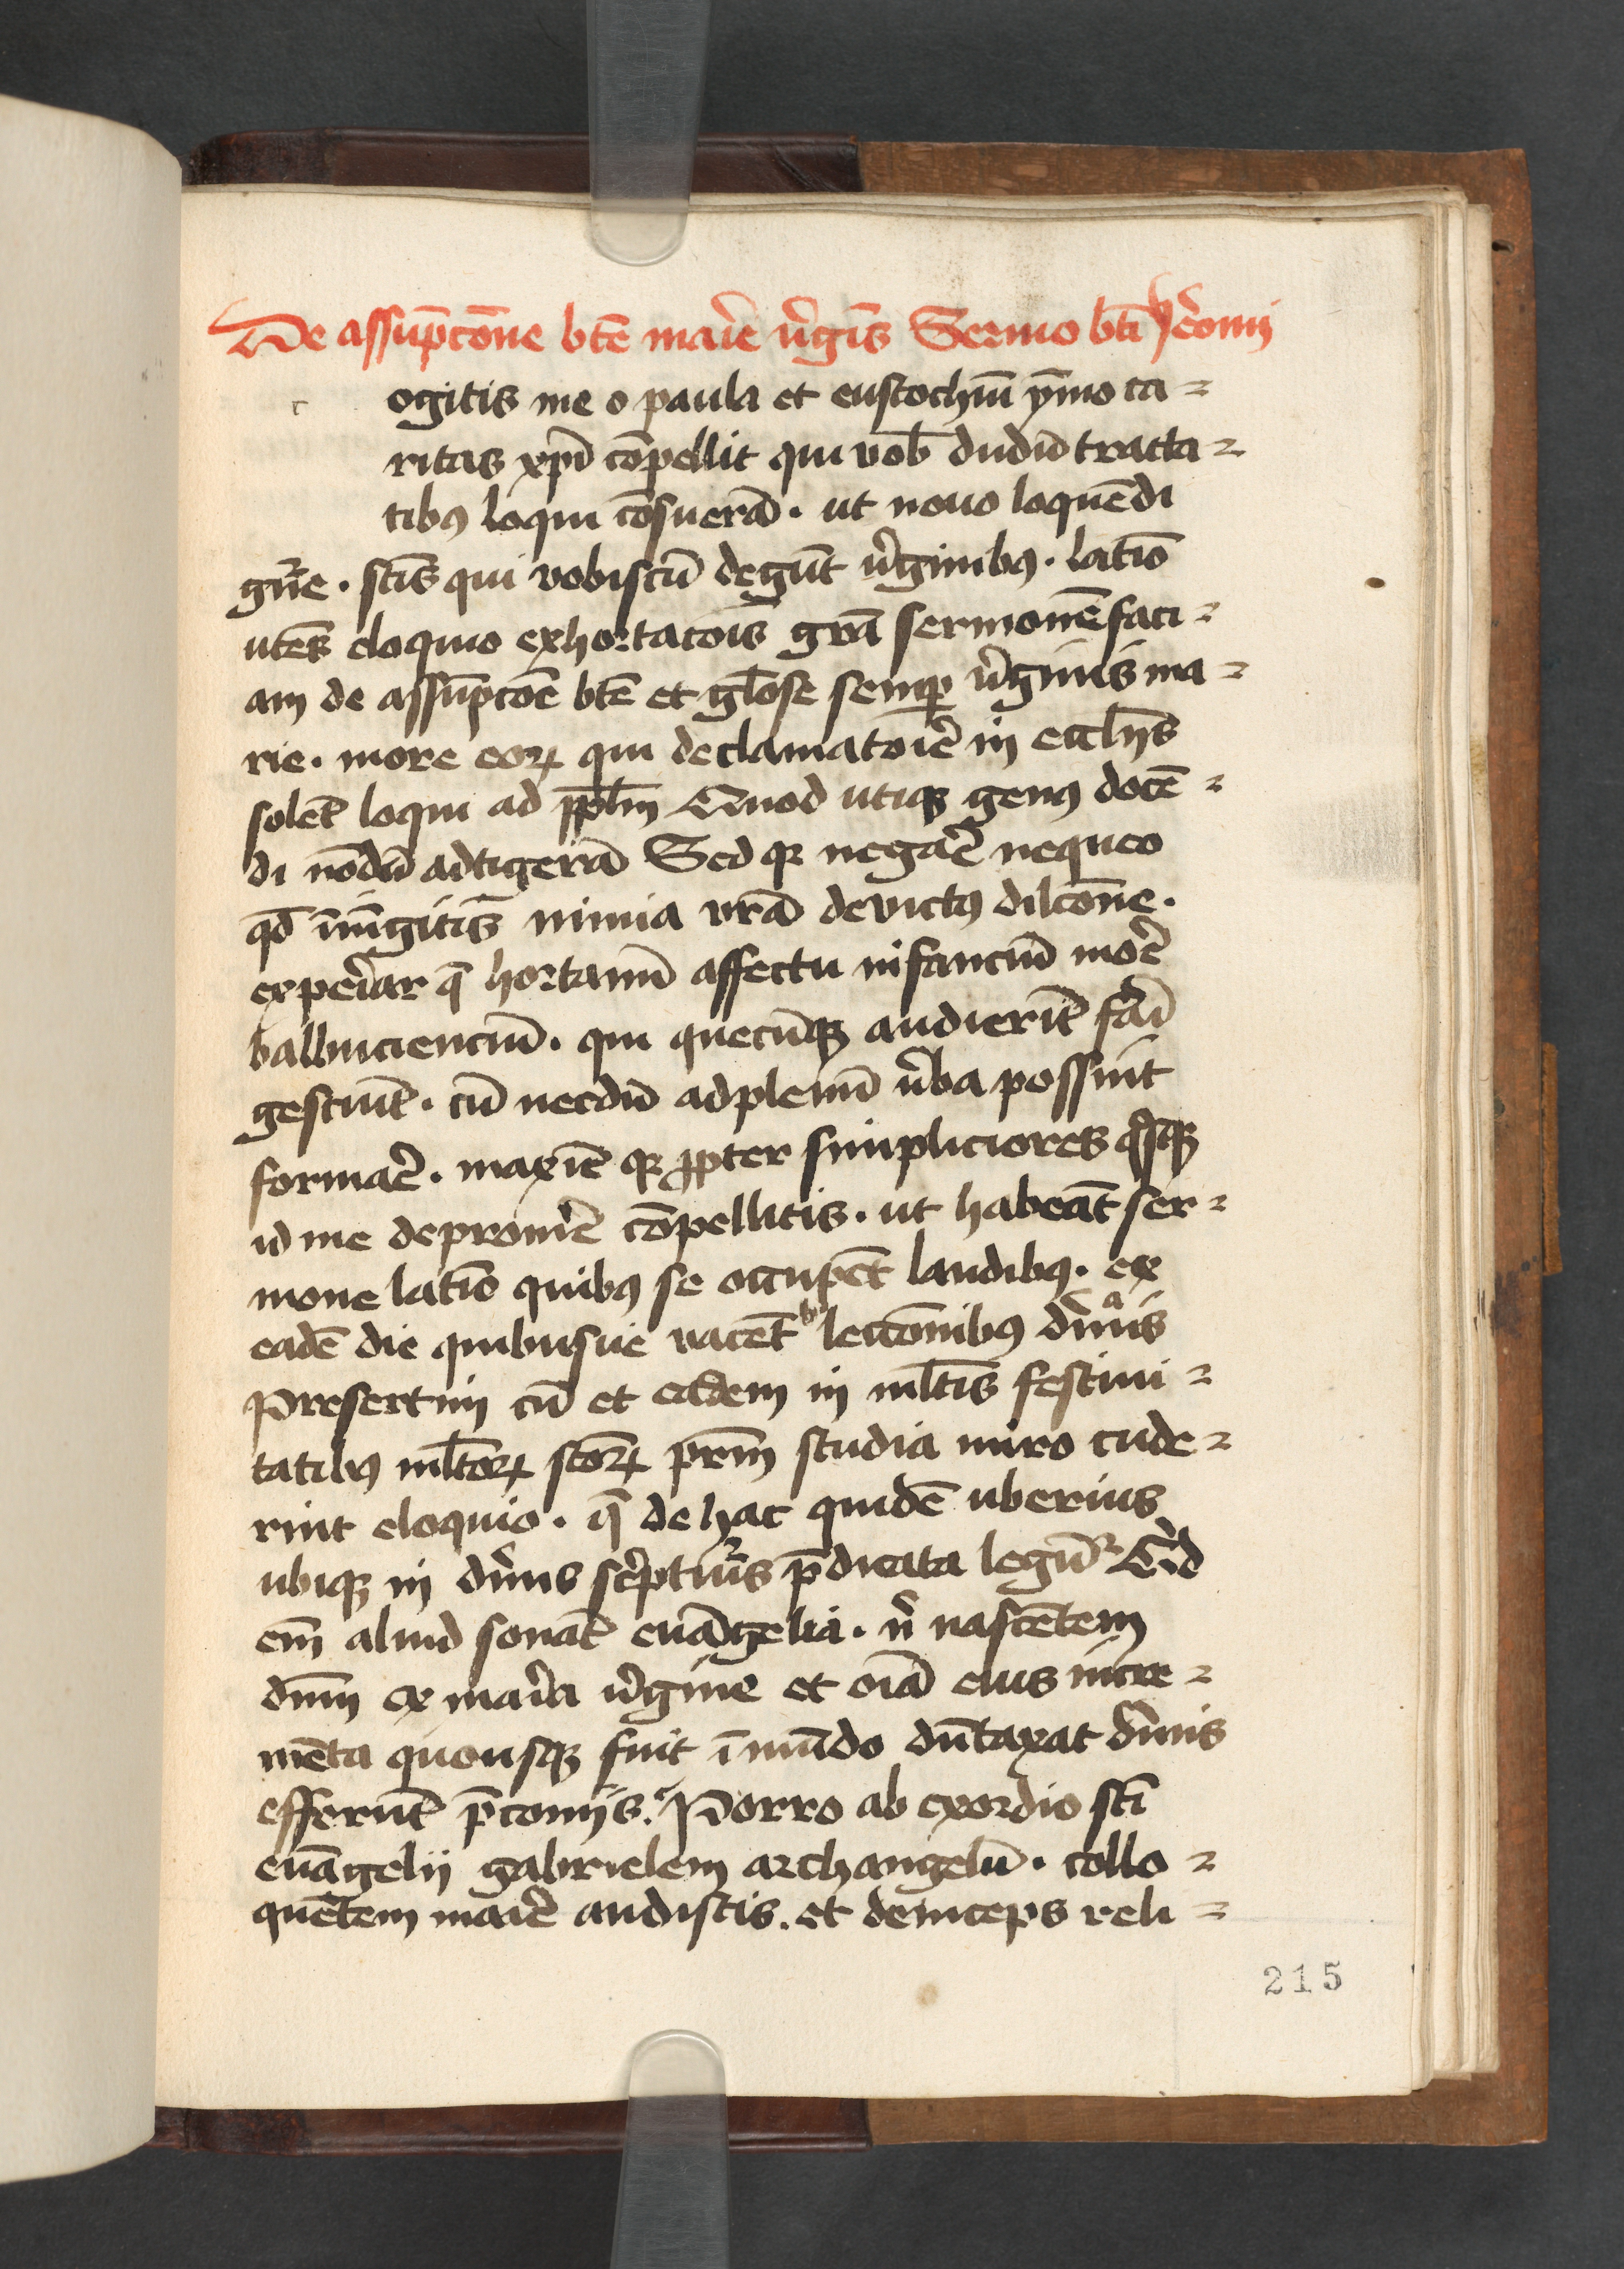 De assūpcōne btē mar̄ie v̓gīs Sermo btī Jeronij
c ogitis me o paula et eustochiū ȳmo ca-
ritas xp̄i cōpellit qui vob̄ dudū tracta-
tibꝰ loqui cōsueram̄ . ut nouo loquēdi
gn̄e . sc̄is qui vobiscū degūt v̓ginibꝰ . latīo
utēs eloquio exhortatōis gr̄a sermonē faci-
am de assūpcōe btē et gl̄ose semꝑ v̓ginis ma-
rie . more eoꝝ qui declamator̄ie in eccl̄ijs
solēt loqui ad pp̄lm Quod utiqꝫ genꝰ docē-
di nōdū adtigerā Sed qꝛ negar̄e nequeo
qd̄ iniūgitis nimia vr̄a deuictꝰ dilcōne .
exper̄iar q̄ hortamī affectu infanciū mor̄e
balbuciencium̄ . qui quecūqꝫ audierīt fār̄i
gestiūt . cū necdū ad plenū v̓ba possint
formar̄e . maxīe qꝛ ꝓpter simpliciores q̄sqꝫ
id me deprom̄e cōpellitis . ut habeāt ser-
mone latīo quibꝰ se occupēt laudibꝰ . ex
eadē die quibusue vacēt lectōnibꝰ diuīs
Presertim cū et eadem in ml̄tis festiui-
tatibꝰ ml̄toꝝ sc̄oꝝ pr̄m studia miro cude-
rint eloquio . q̄ de hac quidē uberius
ubiqꝫ in diuīs sc̓ptur̄is p̄dicata legūtᷣ Qͥd
em̄ aliud sonāt euāgelia . nͥ nascētem
dn̄m ex mar̄ia v̓gine et oīa eius incre-
mēta quousqꝫ fuit ī mūdo dūtaxat diuīs
efferūt p̄conijs . Porro ab exordio sc̄i
euāgelij gabrielem archangelū . collo-
quētem mar̄ie audistis . et deinceps reli-
215